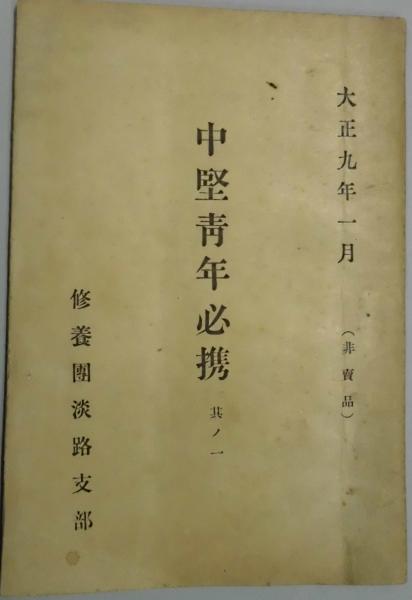 大正九年一月
(非賣品)
中堅靑年必携
其ノ一
修養團淡路支部